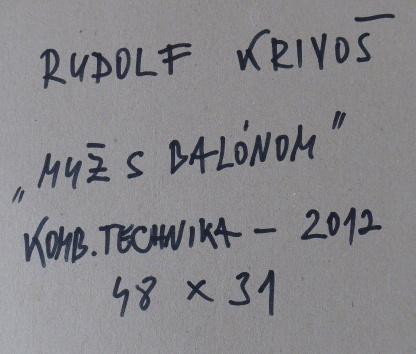 RUDOLF KRIVOŠ
„MUŽ S BALÓNOM"
KOMB. TECHNIKA – 2012
48 x 31